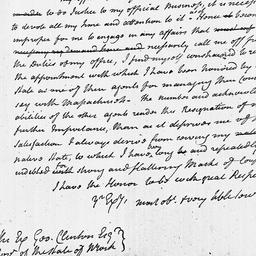 to do Justice to my official Business, it is necess
to devote all my time and attention to it. Hence
improper for me to engage in any affairs that
necessarily call me off fr
the duties of my office, I find myself constrained to re
the appointment with which I have been honored by
State as one of their agents for managing their Contro
sey with Massachusets. The number and acknowled
abilities of the other agents renders this Resignation of
further Importance, than as it deprives me of
Satisfaction I always derive from serving my
native State, to which I have long been and repeatedly
indebted for strong and flattering Marks of Con
I have the Honor to be with great Respe
Yr Exys most obt & very hble Serv
His Ex Gov. Clinton Esqr
Govr of the State of N York